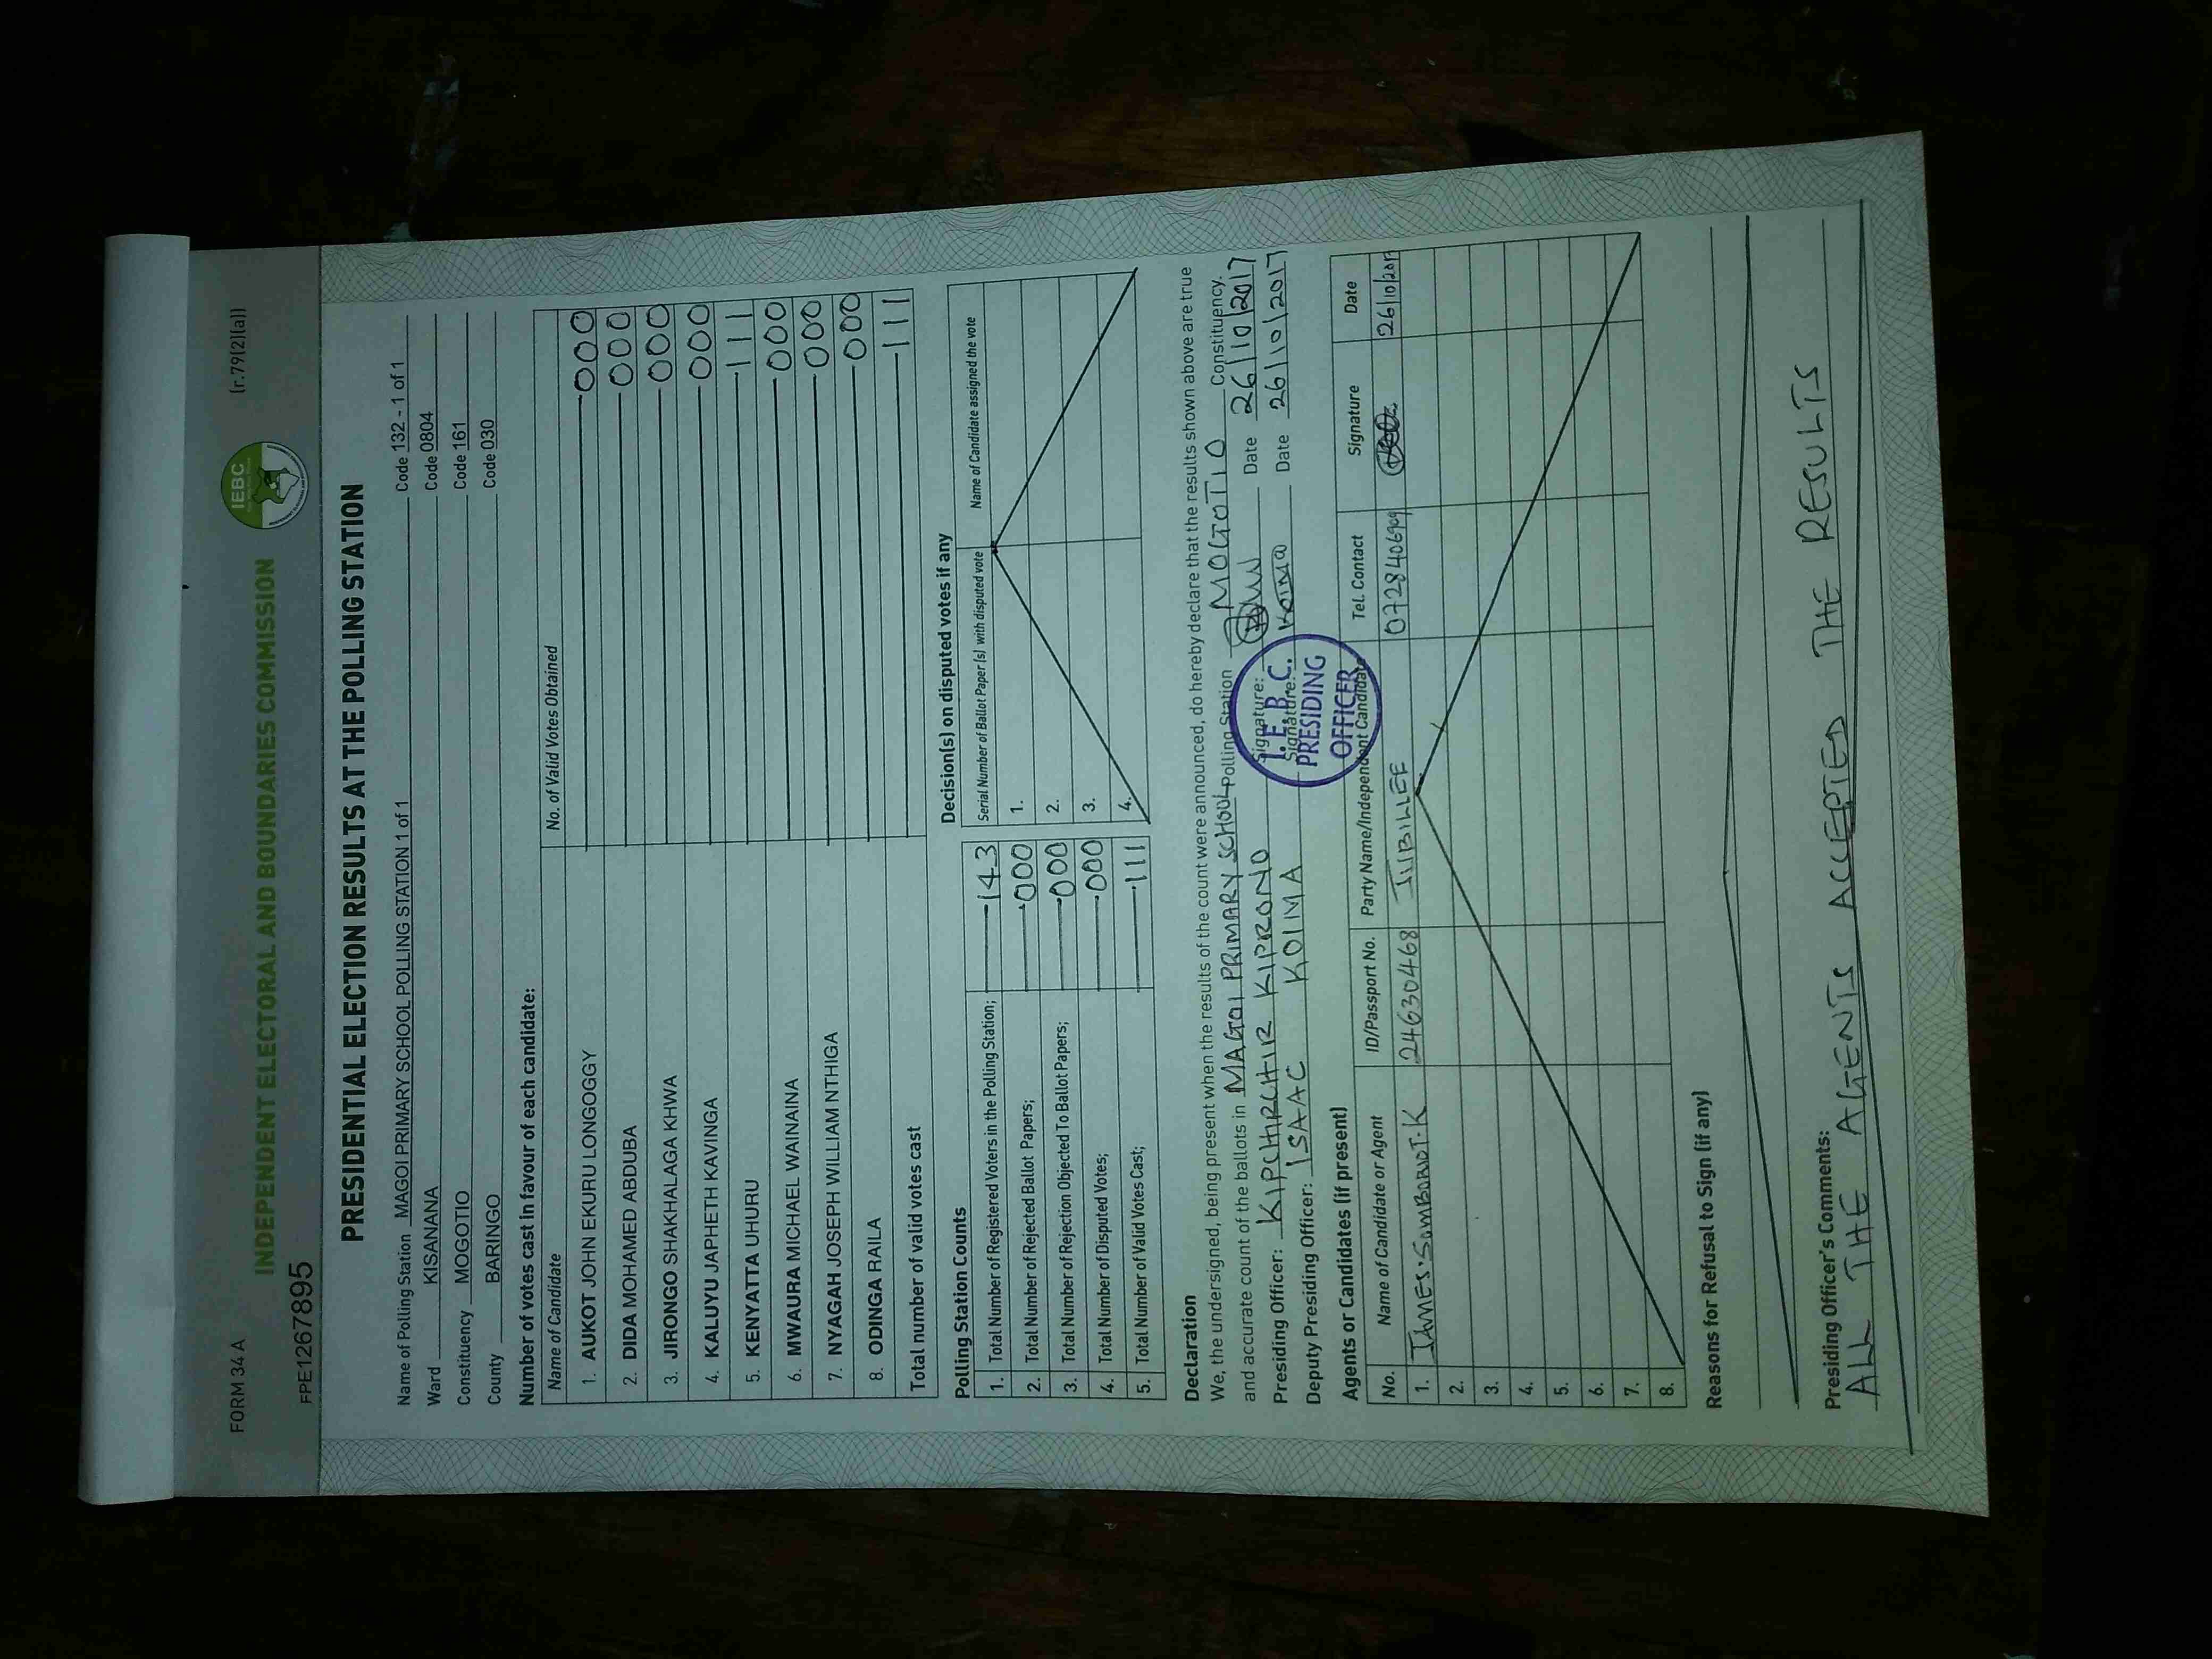 FORM 34 A
(r.79(2)(a))
INDEPENDENT ELECTORAL AND BOUNDARIES COMMISSION
IEBC
FPE1267895
PRESIDENTIAL ELECTION RESULTS AT THE POLLING STATION
Name of Polling Station MAGOI PRIMARY SCHOOL POLLING STATION 1 of 1 Code 132 - 1 of 1
Ward KISANANA Code 0804
Constituency MOGOTIO Code 161
County BARINGO Code 030
Number of votes cast in favour of each candidate:
Name of Candidate No. of Valid Votes Obtained
1. AUKOT JOHN EKURU LONGOGGY 000
2. DIDA MOHAMED ABDUBA 000
3. JIRONGO SHAKHALAGA KHWA 000
4. KALUYU JAPHETH KAVINGA 000
5. KENYATTA UHURU 111
6. MWAURA MICHAEL WAINAINA 000
7. NYAGAH JOSEPH WILLIAM NTHIGA 000
8. ODINGA RAILA 000
Total number of valid votes cast 111
Polling Station Counts
1. Total Number of Registered Voters in the Polling Station; 143
2. Total Number of Rejected Ballot Papers; 000
3. Total Number of Rejection Objected To Ballot Papers; 000
4. Total Number of Disputed Votes; 000
5. Total Number of Valid Votes Cast; 111
Decision(s) on disputed votes if any
Serial Number of Ballot Paper(s) with disputed vote Name of Candidate assigned the vote
1.
2.
3.
4.
Declaration
We, the undersigned, being present when the results of the count were announced, do hereby declare that the results shown above are true
and accurate count of the ballots in MAGOI PRIMARY SCHOOL Polling Station MOGOTIO Constituency.
Presiding Officer: KIPCHIRCHIR KIPRONO Signature: Date 26/10/2017
Deputy Presiding Officer: ISAAC KOIMA Signature: Koima Date 26/10/2017
I.E.B.C.
PRESIDING
OFFICER
Agents or Candidates (if present)
No. Name of Candidate or Agent ID/Passport No. Party Name/Independent Candidate Tel. Contact Signature Date
1. JAMES. K 24630468 JUBILLEE 0728406909 26/10/2017
2.
3.
4.
5.
6.
7.
8.
Reasons for Refusal to Sign (if any)
Presiding Officer's Comments:
ALL THE AGENTS ACCEPTED THE RESULTS